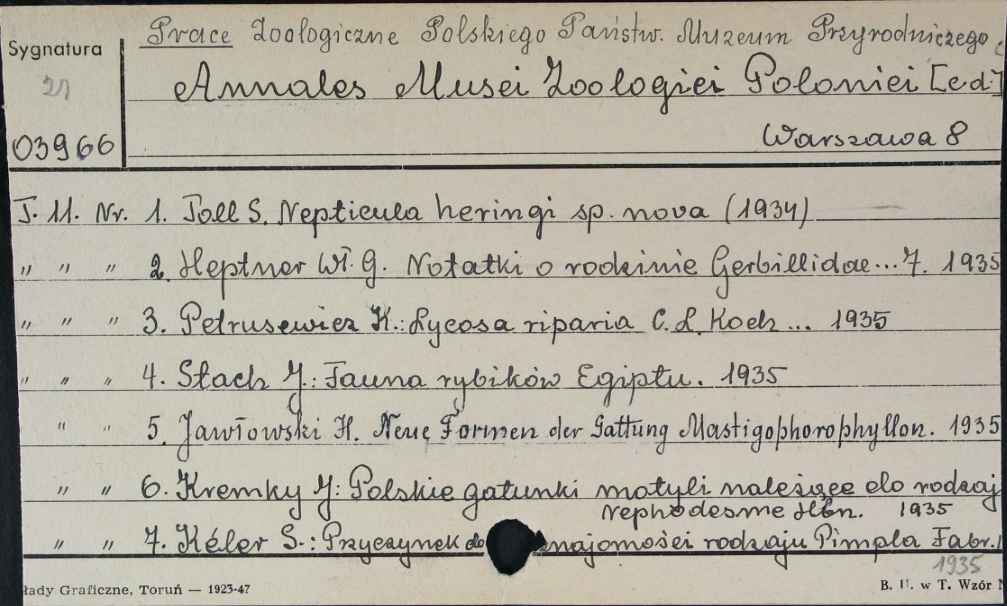 Prace Zoologiczne Polskiego Państw. Muzeum Przyrodniczego
Sygnatura
21
03966
Annales Musei Zoologiei Poloniei [ed.]
Warszawa 8
T. 11. Nr. 1. Toll S. Nepticula heringi sp. nova (1934)
" " " 2. Heptner Wł. G. Notatki o rodzinie Gerbillidae... 7. 1935
" " " 3. Petrusewicz K.: Lycosa riparia C. L. Koch ... 1935
" " " 4. Stach J.: Fauna rybików Egiptu. 1935
" " 5. Jawłowski H. Neue Formen der Gattung Mastigophorophyllon. 1935
" " 6. Kremky J: Polskie gatunki motyli należące do rodzaj
Rephodesme Hbn. 1935
" " 7. Kéler S.: Przyczynek do znajomości rodzaju Pimpla Fabr.
1935
łady Graficzne, Toruń — 1923-47
B. U. w T. Wzór